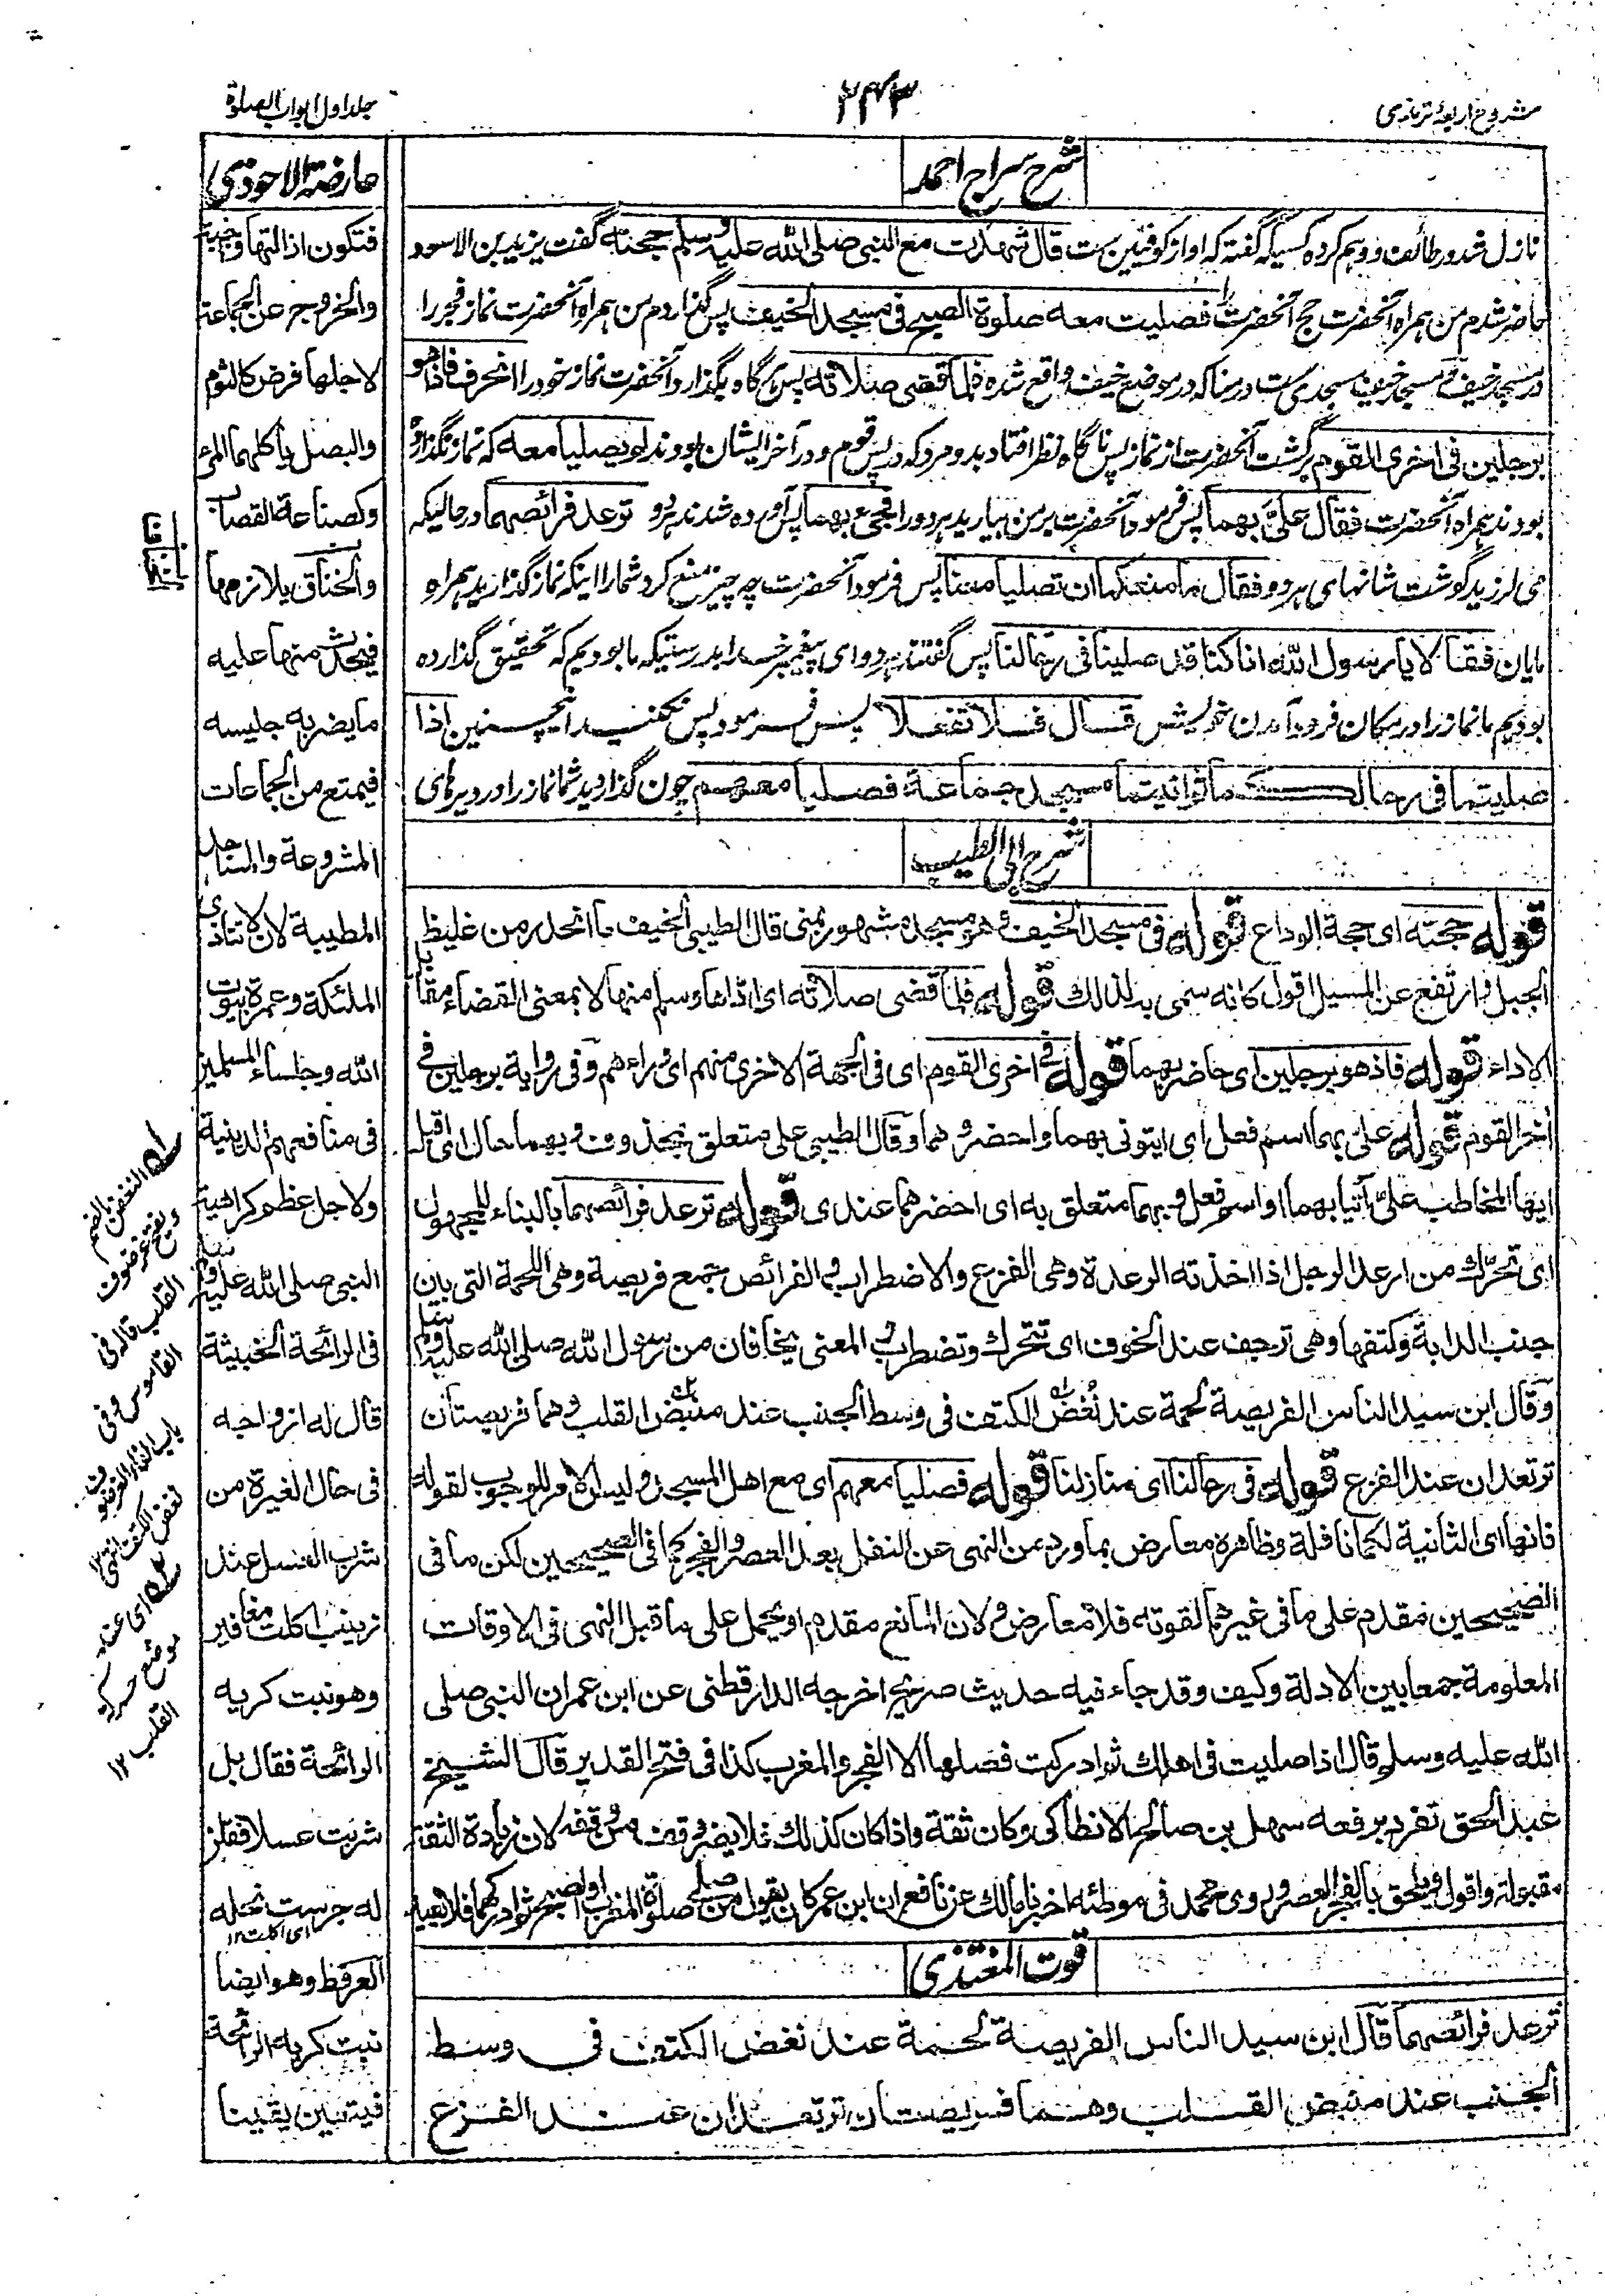 شروح اربعۂ ترمذی
۲۴۳
جلد اول ابواب الصلوة
شرح سراج احمد
نازل شد در طائف و وهم کرده کسیکه گفته که او از کوفیین ست قال شهدت مع النبی صلی الله علیه وسلم حجته گفت یزید بن الاسود
حاضر شدم من همراه آنحضرت حج آنحضرت را فصلیت معه صلوة الصبح فی مسجد الخیف پس گذاردم من همراه آنحضرت نماز فجر را
در مسجد خیف مسجد خیف مسجدی ست در منا که در موضع خیف واقع شده فلما قضی صلاته پس هرگاه بگذارد آنحضرت نماز خود را انحرف فاذا هو
برجلین فی اخری القوم برگشت آنحضرت از نماز پس ناگاه نظر افتاد بدو مرد که در پس قوم و در آخر ایشان بودند لم یصلیا معه که نماز نگذارده
بودند همراه آنحضرت فقال علیّ بهما پس فرمود آنحضرت بر من بیارید هر دو را فجیء بهما پس آورده شدند هر دو ترعد فرائصهما در حالیکه
می لرزید گوشت شانهای هر دو فقال ما منعکما ان تصلیا معنا پس فرمود آنحضرت چه چیز منع کرد شما را اینکه نماز گذارید همراه
مایان فقالا یا رسول الله انا کنا قد صلینا فی رحالنا پس گفتند هر دو ای پیغمبر خدا بدرستیکه ما بودیم که تحقیق گذارده
بودیم ما نماز را در مکان فرود آمدن خویش قال فلا تفعلا پس فرمود پس نکنید اینچنین اذا
صلیتما فی رحالکما ثم اتیتما مسجد جماعة فصلیا معهم چون گذاردید شما نماز را در دیرهای
شرح ابی الطیب
قوله حجته ای حجة الوداع قوله فی مسجد الخیف هو مسجد مشهور بمنی قال الطیبی الخیف ما انحدر من غلیظ
الجبل وارتفع عن المسیل اقول کانه سمی به لذلك قوله فلما قضی صلاته ای اداها وسلم منها لا بمعنی القضاء مقابل
الاداء قوله فاذا هو برجلین ای حاضر بهما قوله فی اخری القوم ای فی الجهة الاخری منهم ای وراءهم وفی روایة برجلین فی
آخر القوم قوله علیّ بهما اسم فعل ای ایتونی بهما واحضروهما وقال الطیبی علی متعلق بمحذوف وبهما حال ای اقبل
ایها المخاطب علیّ آتیا بهما او اسم فعل وبهما متعلق به ای احضرهما عندی قوله ترعد فرائصهما بالبناء للمجهول
ای تحرّك من ارعد الرجل اذا اخذته الرعدة وهی الفزع والاضطراب والفرائص جمع فریصة وهی اللحمة التی بین
جنب الدابة وکتفها وهی ترجف عند الخوف ای تتحرك وتضطرب المعنی یخافان من رسول الله صلی الله علیه وسلم
وقال ابن سید الناس الفریصة لحمة عند نُغض الکتف فی وسط الجنب عند منبض القلب وهما فریصتان
ترتعدان عند الفزع قوله فی رحالنا ای منازلنا قوله فصلیا معهم ای مع اهل المسجد ولیس الامر للوجوب لقوله
فانها ای الثانیة لکما نافلة وظاهره معارض بما ورد من النهی عن النفل بعد العصر والفجر کما فی الصحیحین لکن ما فی
الصحیحین مقدم علی ما فی غیرهما لقوته فلا معارض ولان المانع مقدم او یحمل علی ما قبل النهی فی الاوقات
المعلومة جمعا بین الادلة وکیف وقد جاء فیه حدیث صریح اخرجه الدارقطنی عن ابن عمر ان النبی صلی
الله علیه وسلم قال اذا صلیت فی اهلك ثم ادرکت فصلها الا الفجر والمغرب کذا فی فتح القدیر قال الشیخ
عبد الحق تفرد برفعه سهل بن صالح الانطاکی وکان ثقة واذا کان کذلك فلا یضر وقف من وقفه لان زیادة الثقة
مقبولة واقول ویلحق بالفجر العصر وروی محمد فی موطئه اخبرنا مالك عن نافع ان ابن عمر کان یقول من صلی صلوة المغرب او الصبح ثم ادرکهما فلا یعید
قوت المغتذی
ترعد فرائصهما قال ابن سید الناس الفریصة لحمة عند نغض الکتف فی وسط
الجنب عند منبض القلب وهما فریصتان ترتعدان عند الفزع
عارضة الاحوذی
فتکون اذالتها واجبة
والخروج عن الجماعة
لاجلها فرض کالثوم
والبصل یاکلهما المرء
وکصناعة القصاب
والخناق یلازمها
فیحدث منها علیه
ما یضر به جلیسه
فیمتنع من الجماعات
المشروعة والمساجد
المطیبة لان لا تتاذی
الملئکة وعمرة بیوت
الله وجلساء المسلمین
فی منافعهم الدینیة
ولاجل عظم کراهیة
النبی صلی الله علیه وسلم
فی الرائحة الخبیثة
قال له ازواجه
فی حال الغیرة من
شرب العسل عند
زینب اکلت مغافیر
وهو نبت کریه
الرائحة فقال بل
شربت عسلا فقلن
له جرست نحله
ای اکلت ۱۲
العرفط وهو ایضا
نبت کریه الرائحة
فیتبین یقینا
النغض بالضم
ویفتح غرضوف
القلب قاله فی
القاموس وفی
نغض الکتف انتهی
ای عند
موضع حرکة
القلب ۱۲